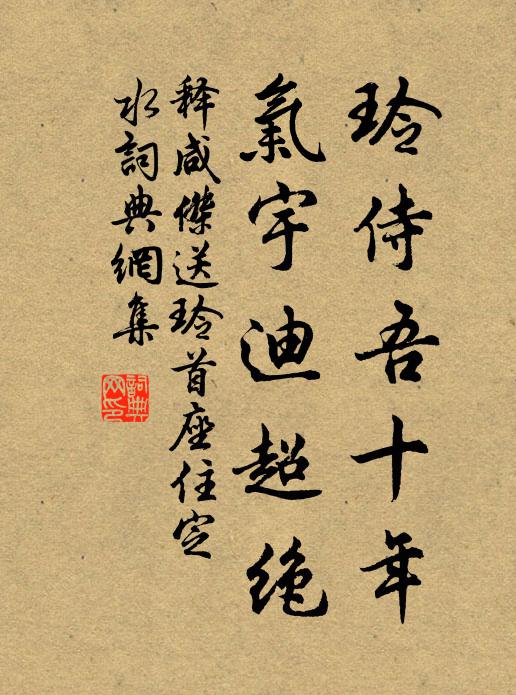 玲侍吾十年
氣宇迪超绝
释咸傑送玲首座住定
水詞典網集
詞典网印